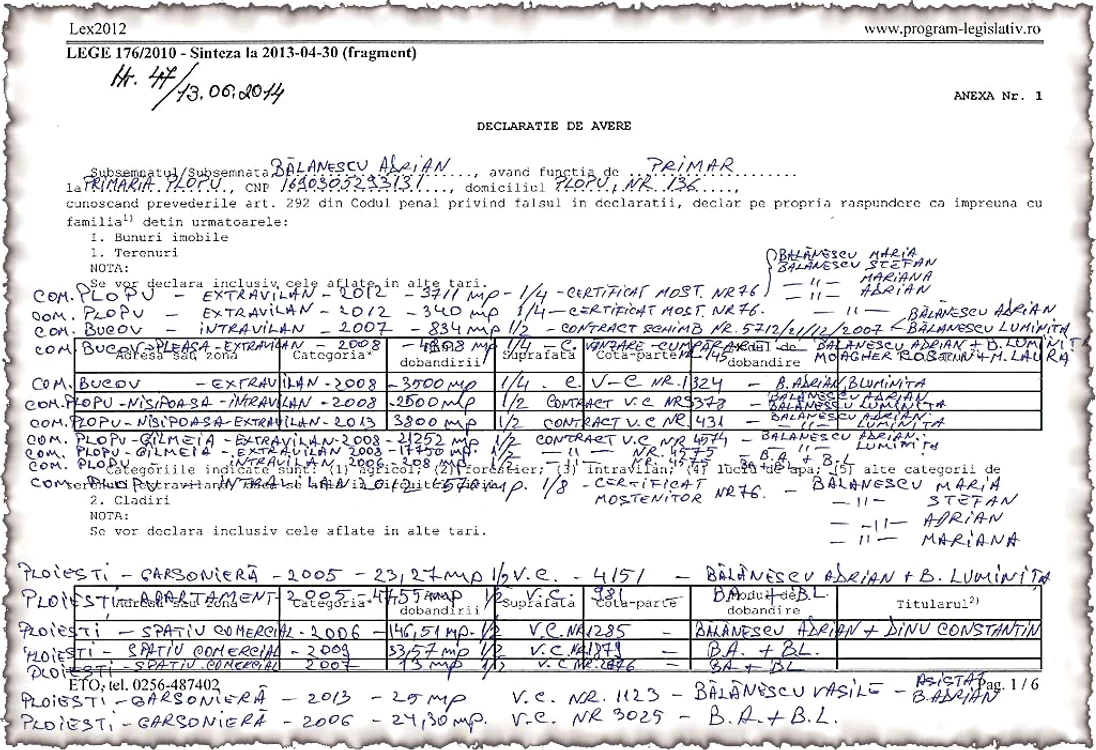 Lex2012 www.program-legislativ.ro
LEGE 176/2010 - Sinteza la 2013-04-30 (fragment)
Nr. 47/13.06.2014
ANEXA Nr. 1
DECLARATIE DE AVERE
Subsemnatul/Subsemnata BĂLANESCU ADRIAN ...., avand functia de ... PRIMAR
la PRIMARIA PLOPU, CNP 1690305293131...., domiciliul PLOPU, NR. 136.....,
cunoscand prevederile art. 292 din Codul penal privind falsul in declaratii, declar pe propria raspundere ca impreuna cu
familia1) detin urmatoarele:
I. Bunuri imobile
1. Terenuri
NOTA:
Se vor declara inclusiv cele aflate in alte tari.
BALANESCU MARIA
BALANESCU STEFAN
-"- MARIANA
-"- ADRIAN
COM. PLOPU - EXTRAVILAN - 2012 - 3711 mp - 1/4 - CERTIFICAT MOST. NR 76
COM. PLOPU - EXTRAVILAN - 2012 - 340 mp 1/4 - CERTIFICAT MOST. NR 76. -"-
COM. BUCOV - INTRAVILAN - 2007 - 834 mp 1/2 - CONTRACT SCHIMB NR. 5712/21/12/2007 BĂLANESCU ADRIAN
BĂLANESCU LUMINITA
COM. BUCOV-PLEASA-EXTRAVILAN - 2008 - mp 1/4 - C. VANZARE-CUMPARARE BALANESCU ADRIAN + B. LUMINITA
MOAGHER + M. LAURA
Adresa sau zona Categoria* dobandirii Suprafata Cota-parte Modul de dobandire
COM. BUCOV - EXTRAVILAN - 2008 - 3500 mp 1/4 . C. V-C NR. 1324 - B. ADRIAN, B LUMINITA
COM. PLOPU-NISIPOASA-INTRAVILAN - 2008 - 2500 mp 1/2 CONTRACT V.C NR 3378 - BALANESCU ADRIAN
BALANESCU LUMINITA
COM. PLOPU-NISIPOASA-EXTRAVILAN-2013 3800 mp 1/2 CONTRACT V.C NR 431 - BALANESCU ADRIAN
-"- LUMINITA
COM. PLOPU-GILMEIA - EXTRAVILAN-2008 - 21252 mp 1/2 CONTRACT V.C NR 4574 - BALANESCU ADRIAN
-"- LUMINITA
COM. PLOPU-GILMEIA - EXTRAVILAN 2008 - 17750 mp 1/2 -"- NR. 4575
COM. PLOPU INTRAVILAN 2006 mp 1/2 -"- B.A + B.L
Categoriile indicate sunt: (1) agricol; (2) forestier; (3) intravilan; (4) luciu de apa; (5) alte categorii de
COM. PLOPU - INTRAVILAN 2012 - mp. 1/8 - CERTIFICAT MOSTENITOR NR 76. - BĂLANESCU MARIA
-"- STEFAN
-"- ADRIAN
-"- MARIANA
2. Cladiri
NOTA:
Se vor declara inclusiv cele aflate in alte tari.
PLOIESTI - GARSONIERĂ - 2005 - 23,27 mp 1/2 V.C. - 4151 - BĂLĂNESCU ADRIAN + B. LUMINIȚA
PLOIESTI - APARTAMENT - 2005 - mp 1/2 V.C. 981 - B.A + B.L
Adresa sau zona Categoria* dobandirii Suprafata Cota-parte Modul de dobandire Titularul2)
PLOIESTI - SPATIU COMERCIAL - 2006 - 146,51 mp. 1/2 V.C. NR 1285 - BALANESCU ADRIAN + DINU CONSTANTIN
PLOIESTI - SPATIU COMERCIAL - 2009 33,57 mp 1/2 V.C. NR 1879 - B.A. + B.L.
PLOIESTI - SPATIU COMERCIAL 2007 13 mp 1/2 V.C NR. - BA + BL
ETO, tel. 0256-487402 Pag. 1 / 6
PLOIESTI - GARSONIERĂ - 2013 - 25 mp V.C. NR. 1123 - BĂLĂNESCU VASILE - ASISTAT B. ADRIAN
PLOIESTI - GARSONIERĂ - 2006 - 24,30 mp. V.C. NR 3025 - B.A. + B.L.